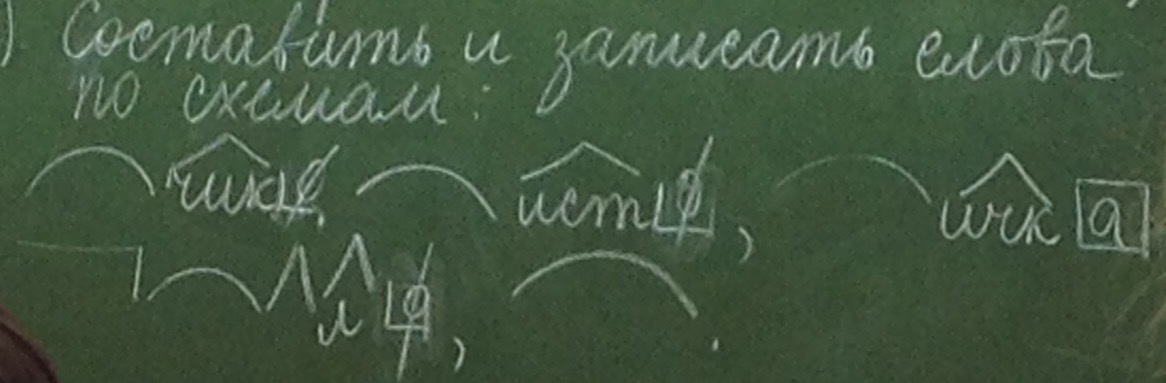 ) Составить и записать слова
по схемам:
чик ∅, ист ∅, ичк а
л ∅, .